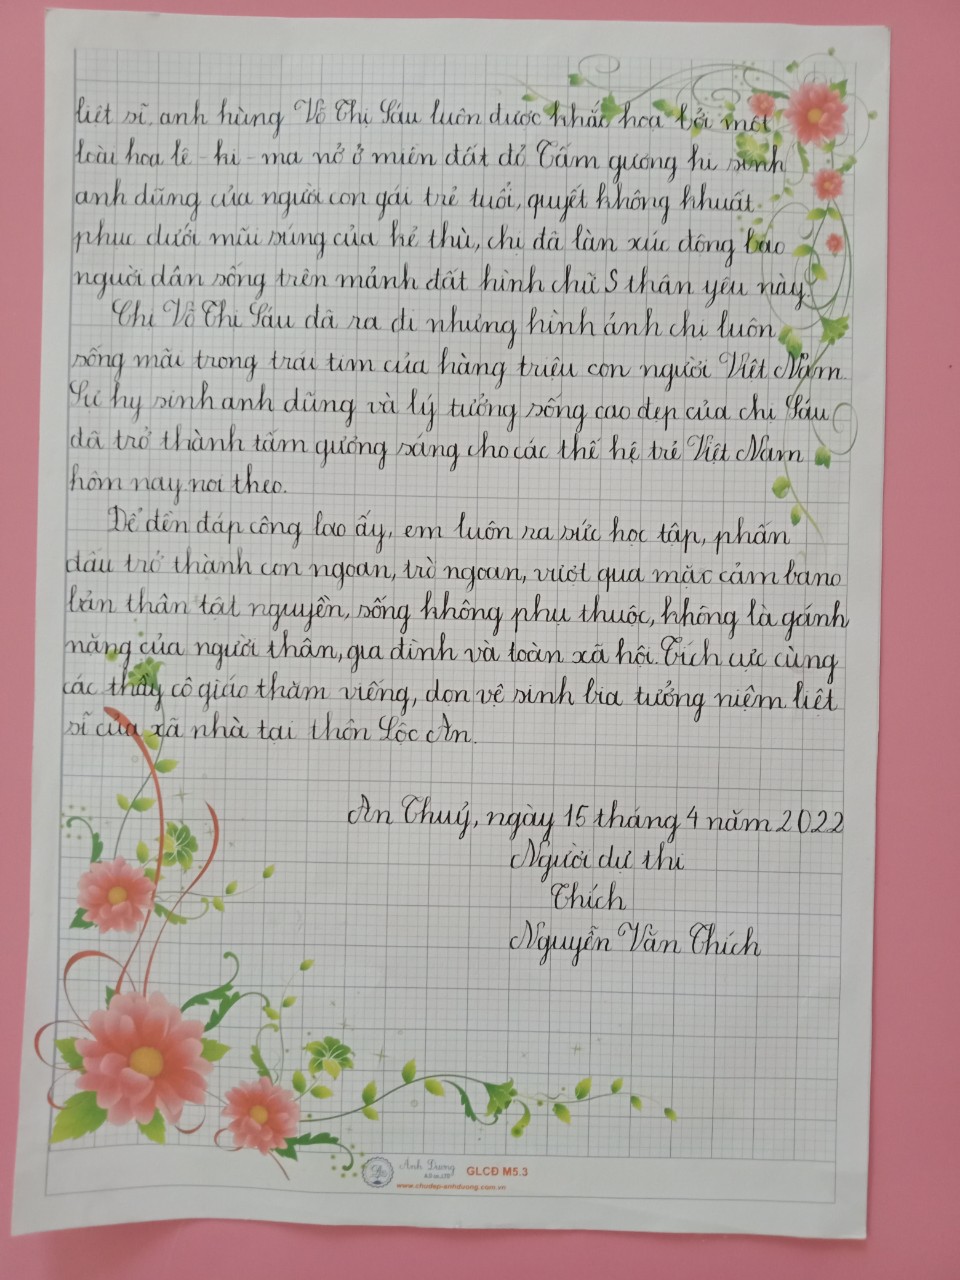 liệt sĩ, anh hùng Võ Thị Sáu luôn được khắc họa bởi một
loài hoa lê-ki-ma nở ở miền đất đỏ. Tấm gương hi sinh
anh dũng của người con gái trẻ tuổi, quyết không khuất
phục dưới mũi súng của kẻ thù, chị đã làm xúc động bao
người dân sống trên mảnh đất hình chữ S thân yêu này.
Chị Võ Thị Sáu đã ra đi nhưng hình ảnh chị luôn
sống mãi trong trái tim của hàng triệu con người Việt Nam.
Sự hy sinh anh dũng và lý tưởng sống cao đẹp của chị Sáu
đã trở thành tấm gương sáng cho các thế hệ trẻ Việt Nam
hôm nay noi theo.
Để đền đáp công lao ấy, em luôn ra sức học tập, phấn
đấu trở thành con ngoan, trò ngoan, vượt qua mặc cảm
bản thân tật nguyền, sống không phụ thuộc, không là gánh
nặng của người thân, gia đình và toàn xã hội. Tích cực cùng
các thầy cô giáo thăm viếng, dọn vệ sinh bia tưởng niệm liệt
sĩ của xã nhà tại thôn Lộc An.
An Thuỷ, ngày 15 tháng 4 năm 2022
Người dự thi
Thích
Nguyễn Văn Thích
Ánh Dương
GLCĐ M5.3
www.chudep-anhduong.com.vn